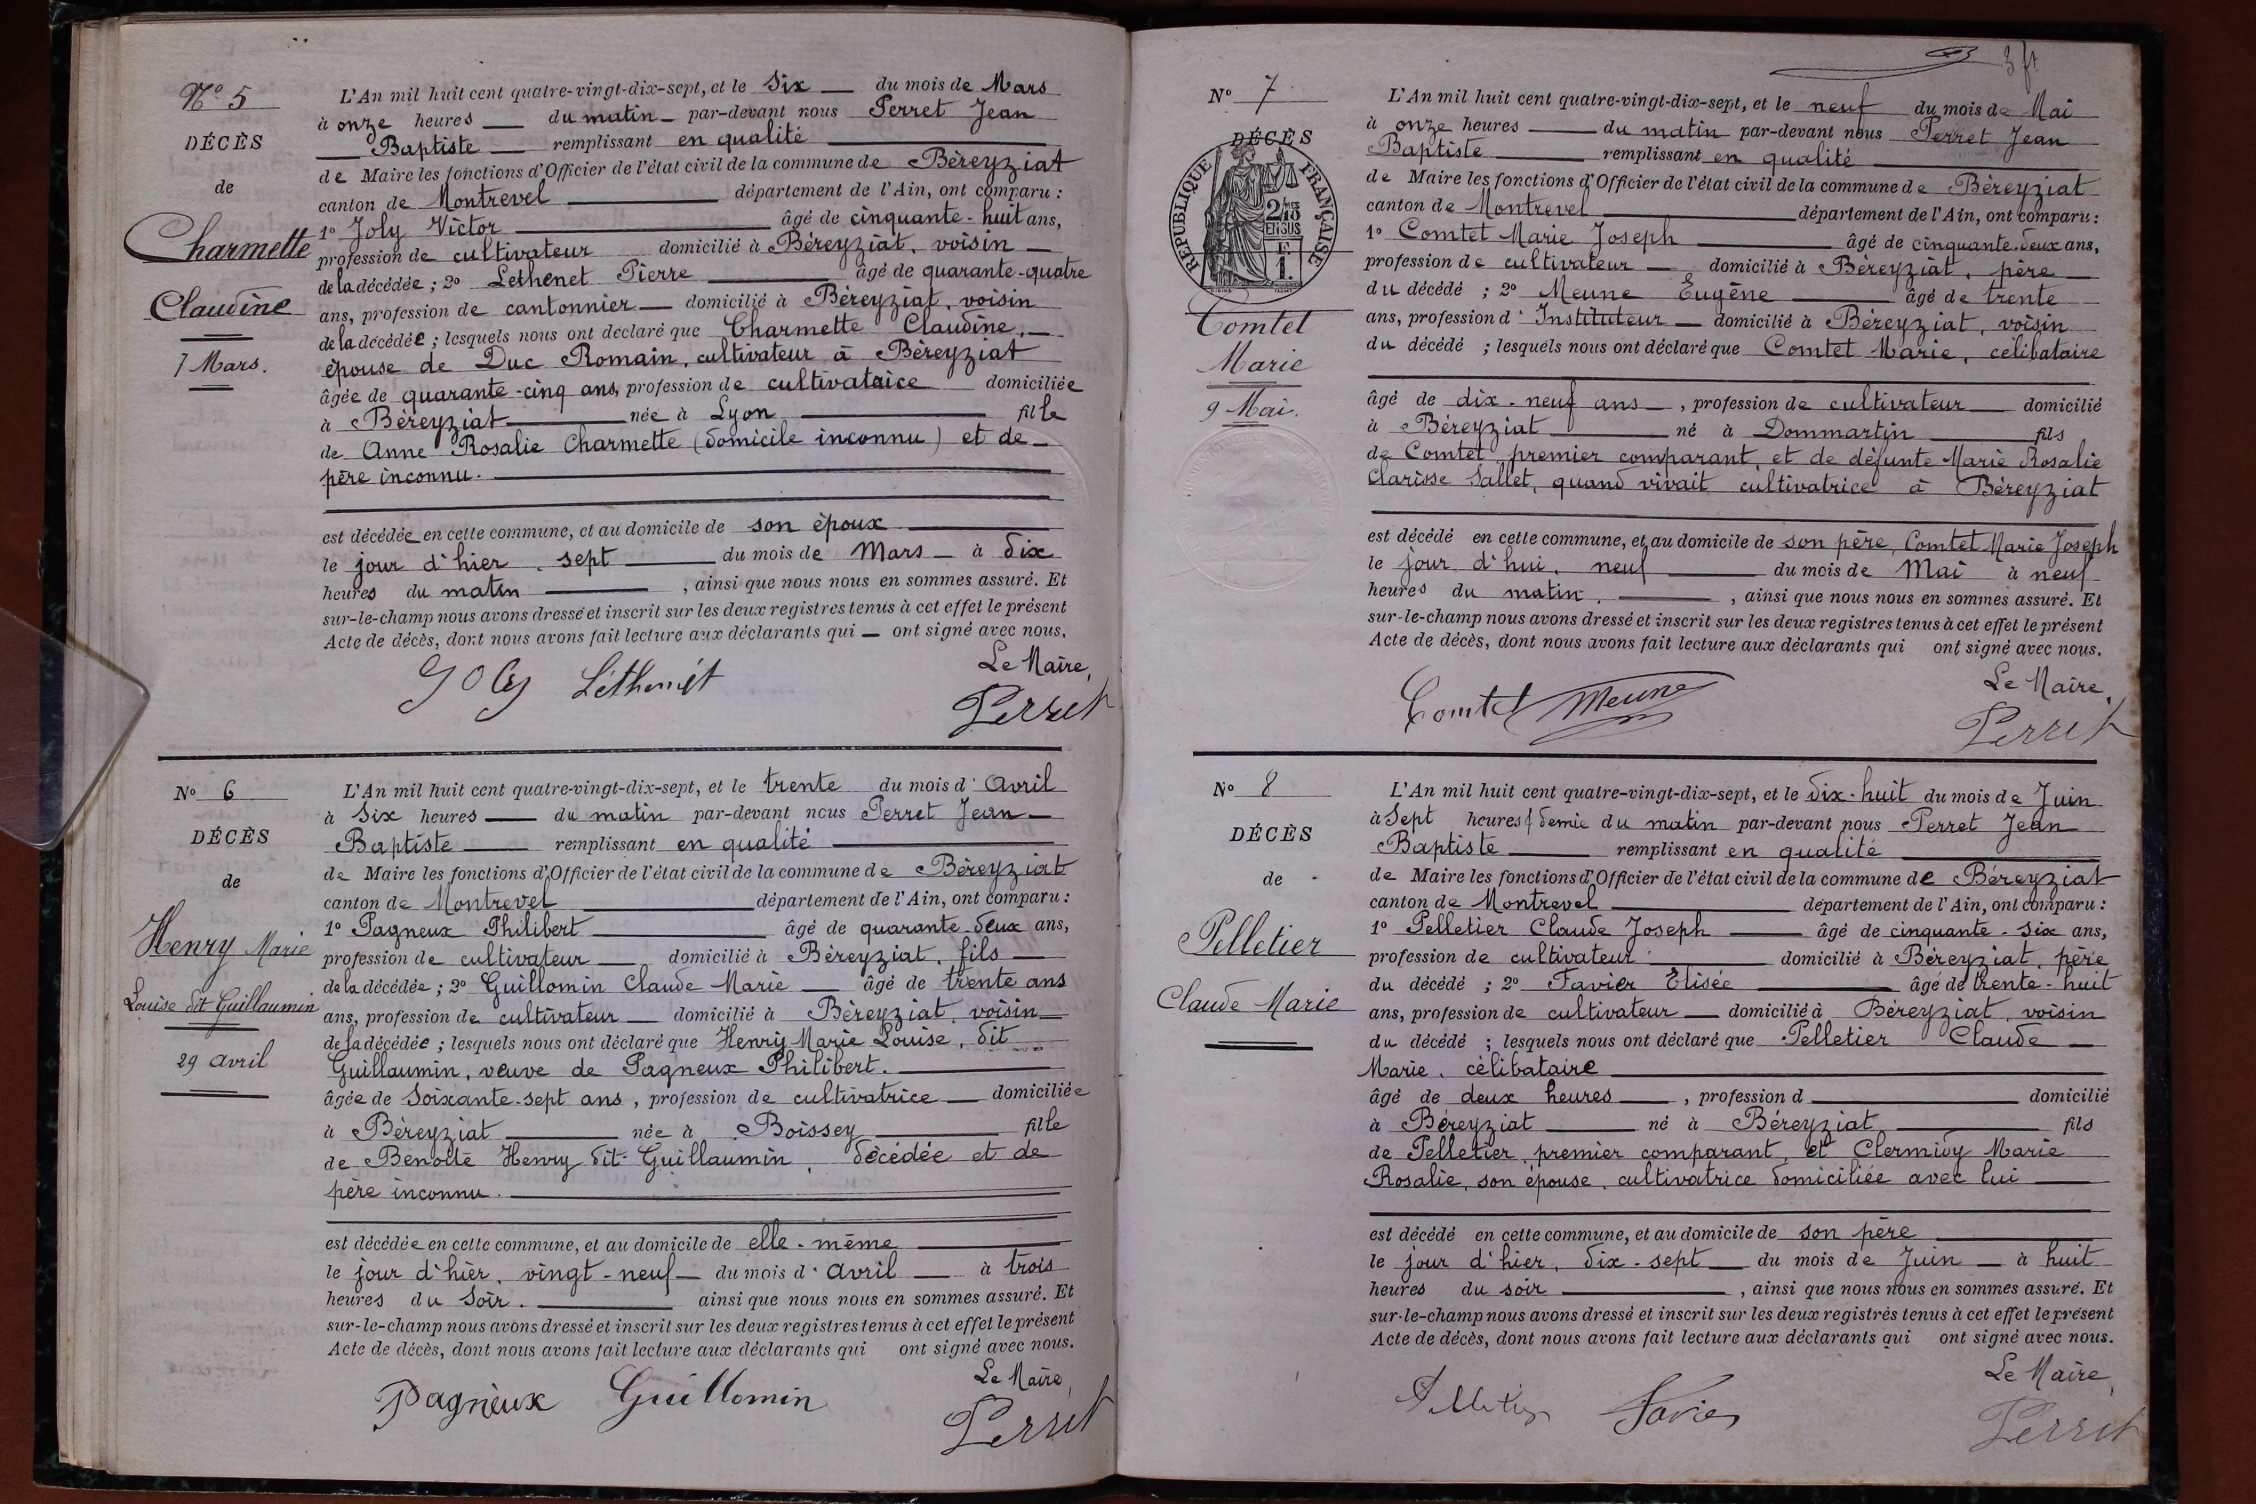 Nº 5
DÉCÈS
de
Charmette
Claudine
7 Mars.
L'An mil huit cent quatre-vingt-dix-sept, et le Six du mois de Mars
à onze heures du matin par-devant nous Perret Jean
Baptiste remplissant en qualité
de Maire les fonctions d'Officier de l'état civil de la commune de Béreyziat
canton de Montrevel département de l'Ain, ont comparu :
1º Joly Victor âgé de cinquante-huit ans,
profession de cultivateur domicilié à Béreyziat, voisin
de la décédée ; 2º Lethenet Pierre âgé de quarante-quatre
ans, profession de cantonnier domicilié à Béreyziat, voisin
de la décédée ; lesquels nous ont déclaré que Charmette Claudine,
épouse de Duc Romain, cultivateur à Béreyziat
âgée de quarante-cinq ans, profession de cultivataice domiciliée
à Béreyziat née à Lyon fille
de Anne Rosalie Charmette (domicile inconnu) et de
père inconnu.
est décédée en cette commune, et au domicile de son époux
le jour d'hier, sept du mois de Mars à dix
heures du matin , ainsi que nous nous en sommes assuré. Et
sur-le-champ nous avons dressé et inscrit sur les deux registres tenus à cet effet le présent
Acte de décès, dont nous avons fait lecture aux déclarants qui ont signé avec nous.
Le Maire,
Joly Lethenet
Perret
Nº 6
DÉCÈS
de
Henry Marie
Louise dit Guillaumin
29 avril
L'An mil huit cent quatre-vingt-dix-sept, et le trente du mois d'Avril
à Six heures du matin par-devant nous Perret Jean
Baptiste remplissant en qualité
de Maire les fonctions d'Officier de l'état civil de la commune de Béreyziat
canton de Montrevel département de l'Ain, ont comparu :
1º Pagneux Philibert âgé de quarante-deux ans,
profession de cultivateur domicilié à Béreyziat, fils
de la décédée ; 2º Guillomin Claude Marie âgé de trente ans
ans, profession de cultivateur domicilié à Béreyziat, voisin
de la décédée ; lesquels nous ont déclaré que Henry Marie Louise, dit
Guillaumin, veuve de Pagneux Philibert.
âgée de Soixante-sept ans, profession de cultivatrice domiciliée
à Béreyziat née à Boissey fille
de Benoîte Henry dit Guillaumin, décédée et de
père inconnu.
est décédée en cette commune, et au domicile de elle-même
le jour d'hier, vingt-neuf du mois d'avril à trois
heures du Soir. ainsi que nous nous en sommes assuré. Et
sur-le-champ nous avons dressé et inscrit sur les deux registres tenus à cet effet le présent
Acte de décès, dont nous avons fait lecture aux déclarants qui ont signé avec nous.
Le Maire,
Pagneux Guillomin
Perret
3 ft
Nº 7
DÉCÈS
RÉPUBLIQUE FRANÇAISE
2/10 EN SUS
Comtet
Marie
9 Mai.
L'An mil huit cent quatre-vingt-dix-sept, et le neuf du mois de Mai
à onze heures du matin par-devant nous Perret Jean
Baptiste remplissant en qualité
de Maire les fonctions d'Officier de l'état civil de la commune de Béreyziat
canton de Montrevel département de l'Ain, ont comparu :
1º Comtet Marie Joseph âgé de cinquante-deux ans,
profession de cultivateur domicilié à Béreyziat, père
du décédé ; 2º Meune Eugène âgé de trente
ans, profession d'Instituteur domicilié à Béreyziat, voisin
du décédé ; lesquels nous ont déclaré que Comtet Marie, célibataire
âgé de dix-neuf ans, profession de cultivateur domicilié
à Béreyziat né à Dommartin fils
de Comtet, premier comparant, et de défunte Marie Rosalie
Clarisse Sallet, quand vivait cultivatrice à Béreyziat
est décédé en cette commune, et au domicile de son père, Comtet Marie Joseph
le jour d'hui, neuf du mois de Mai à neuf
heures du matin. , ainsi que nous nous en sommes assuré. Et
sur-le-champ nous avons dressé et inscrit sur les deux registres tenus à cet effet le présent
Acte de décès, dont nous avons fait lecture aux déclarants qui ont signé avec nous.
Le Maire,
Comtet Meune
Perret
Nº 8
DÉCÈS
de
Pelletier
Claude Marie
L'An mil huit cent quatre-vingt-dix-sept, et le dix-huit du mois de Juin
à Sept heures & demie du matin par-devant nous Perret Jean
Baptiste remplissant en qualité
de Maire les fonctions d'Officier de l'état civil de la commune de Béreyziat
canton de Montrevel département de l'Ain, ont comparu :
1º Pelletier Claude Joseph âgé de cinquante-six ans,
profession de cultivateur domicilié à Béreyziat, père
du décédé ; 2º Favier Elisée âgé de trente-huit
ans, profession de cultivateur domicilié à Béreyziat, voisin
du décédé ; lesquels nous ont déclaré que Pelletier Claude
Marie, célibataire
âgé de deux heures , profession d domicilié
à Béreyziat né à Béreyziat fils
de Pelletier, premier comparant, et Clermidy Marie
Rosalie, son épouse, cultivatrice domiciliée avec lui
est décédé en cette commune, et au domicile de son père
le jour d'hier, dix-sept du mois de Juin à huit
heures du soir , ainsi que nous nous en sommes assuré. Et
sur-le-champ nous avons dressé et inscrit sur les deux registres tenus à cet effet le présent
Acte de décès, dont nous avons fait lecture aux déclarants qui ont signé avec nous.
Le Maire,
Pelletier Favier
Perret